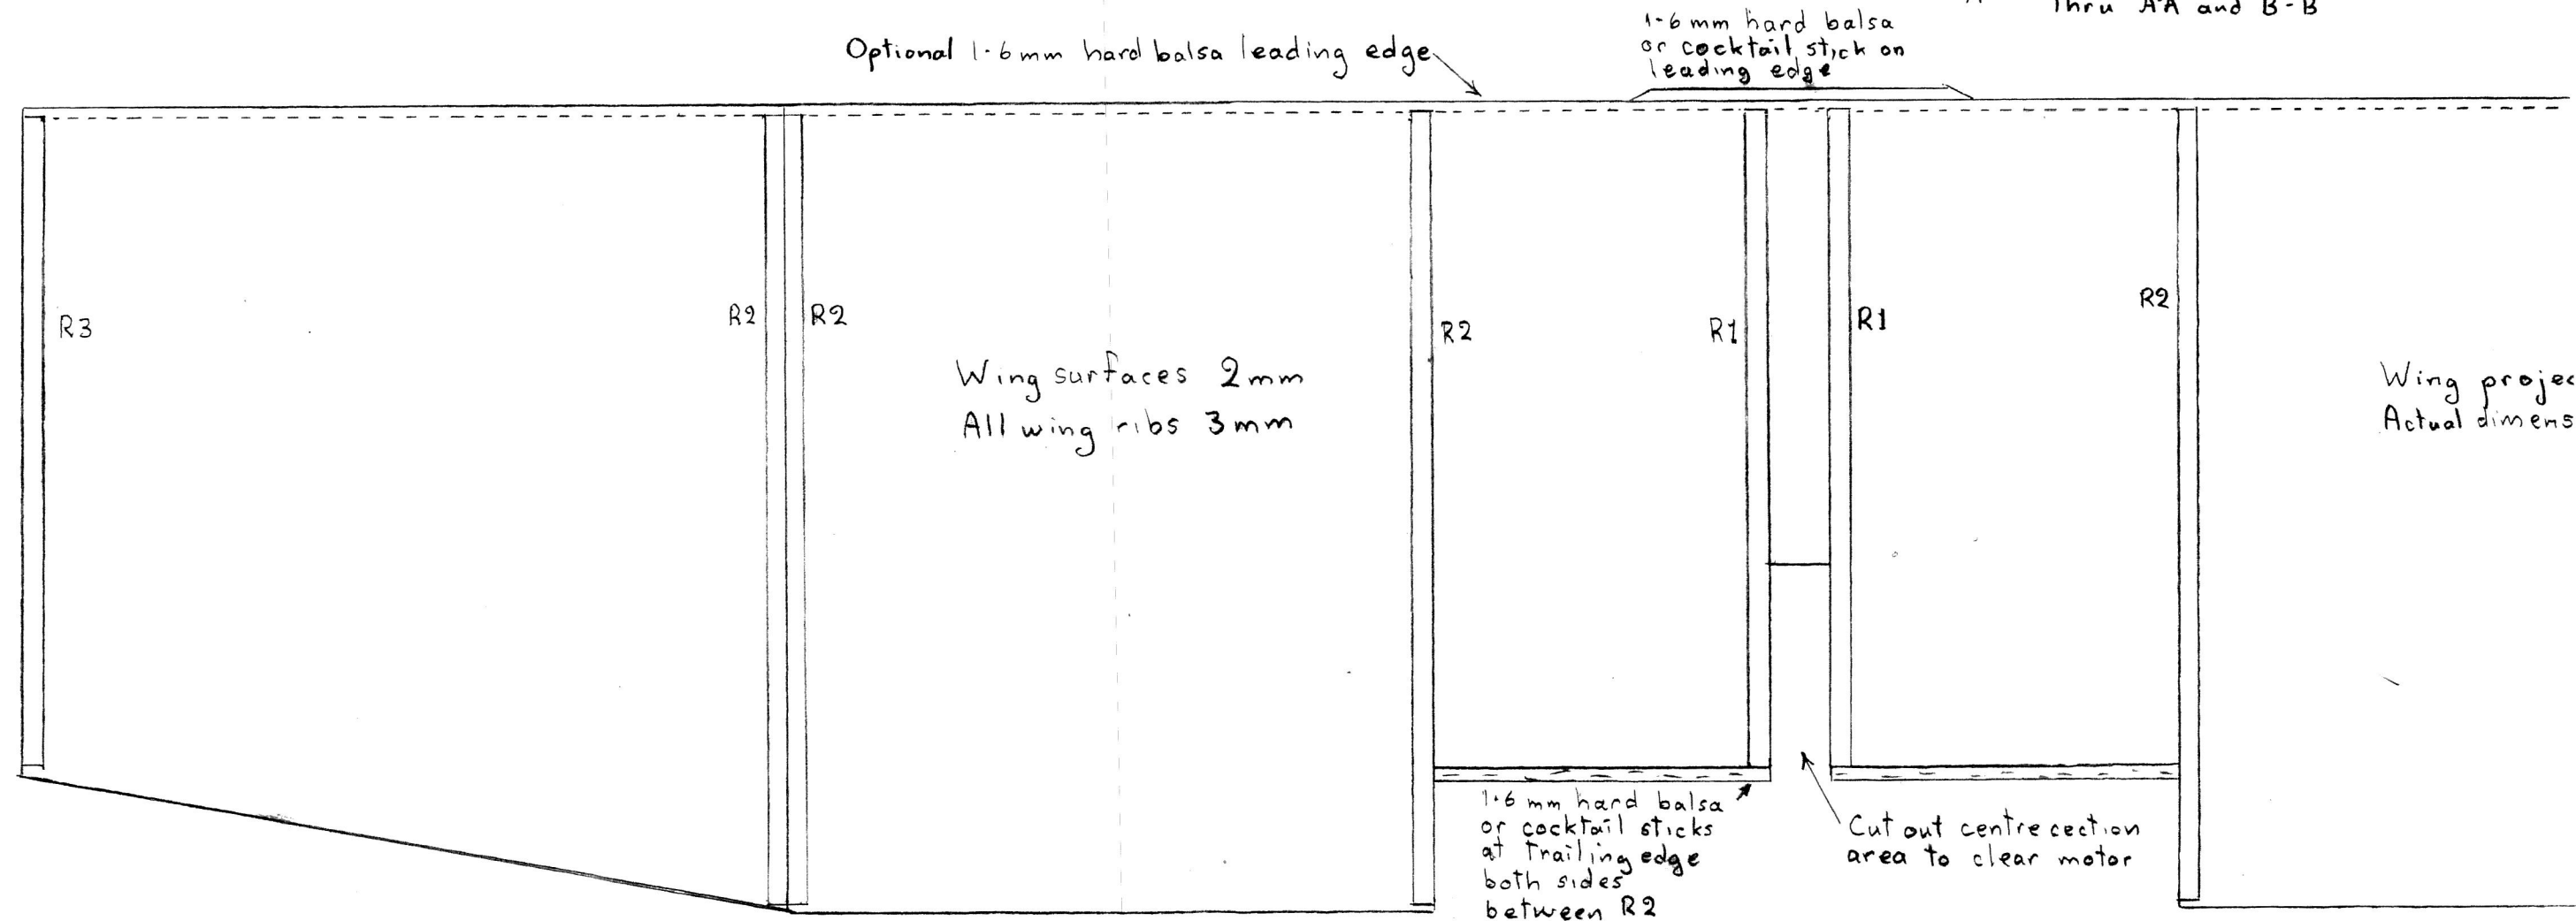 Thru AA and B-B
Optional 1·6mm hard balsa leading edge
1·6mm hard balsa
or cocktail stick on
leading edge
R3
R2
R2
R2
R1
R1
R2
Wing surfaces 2mm
All wing ribs 3mm
Wing projec
Actual dimens
1·6 mm hard balsa
or cocktail sticks
at Trailing edge
both sides
between R2
Cut out centre cection
area to clear motor